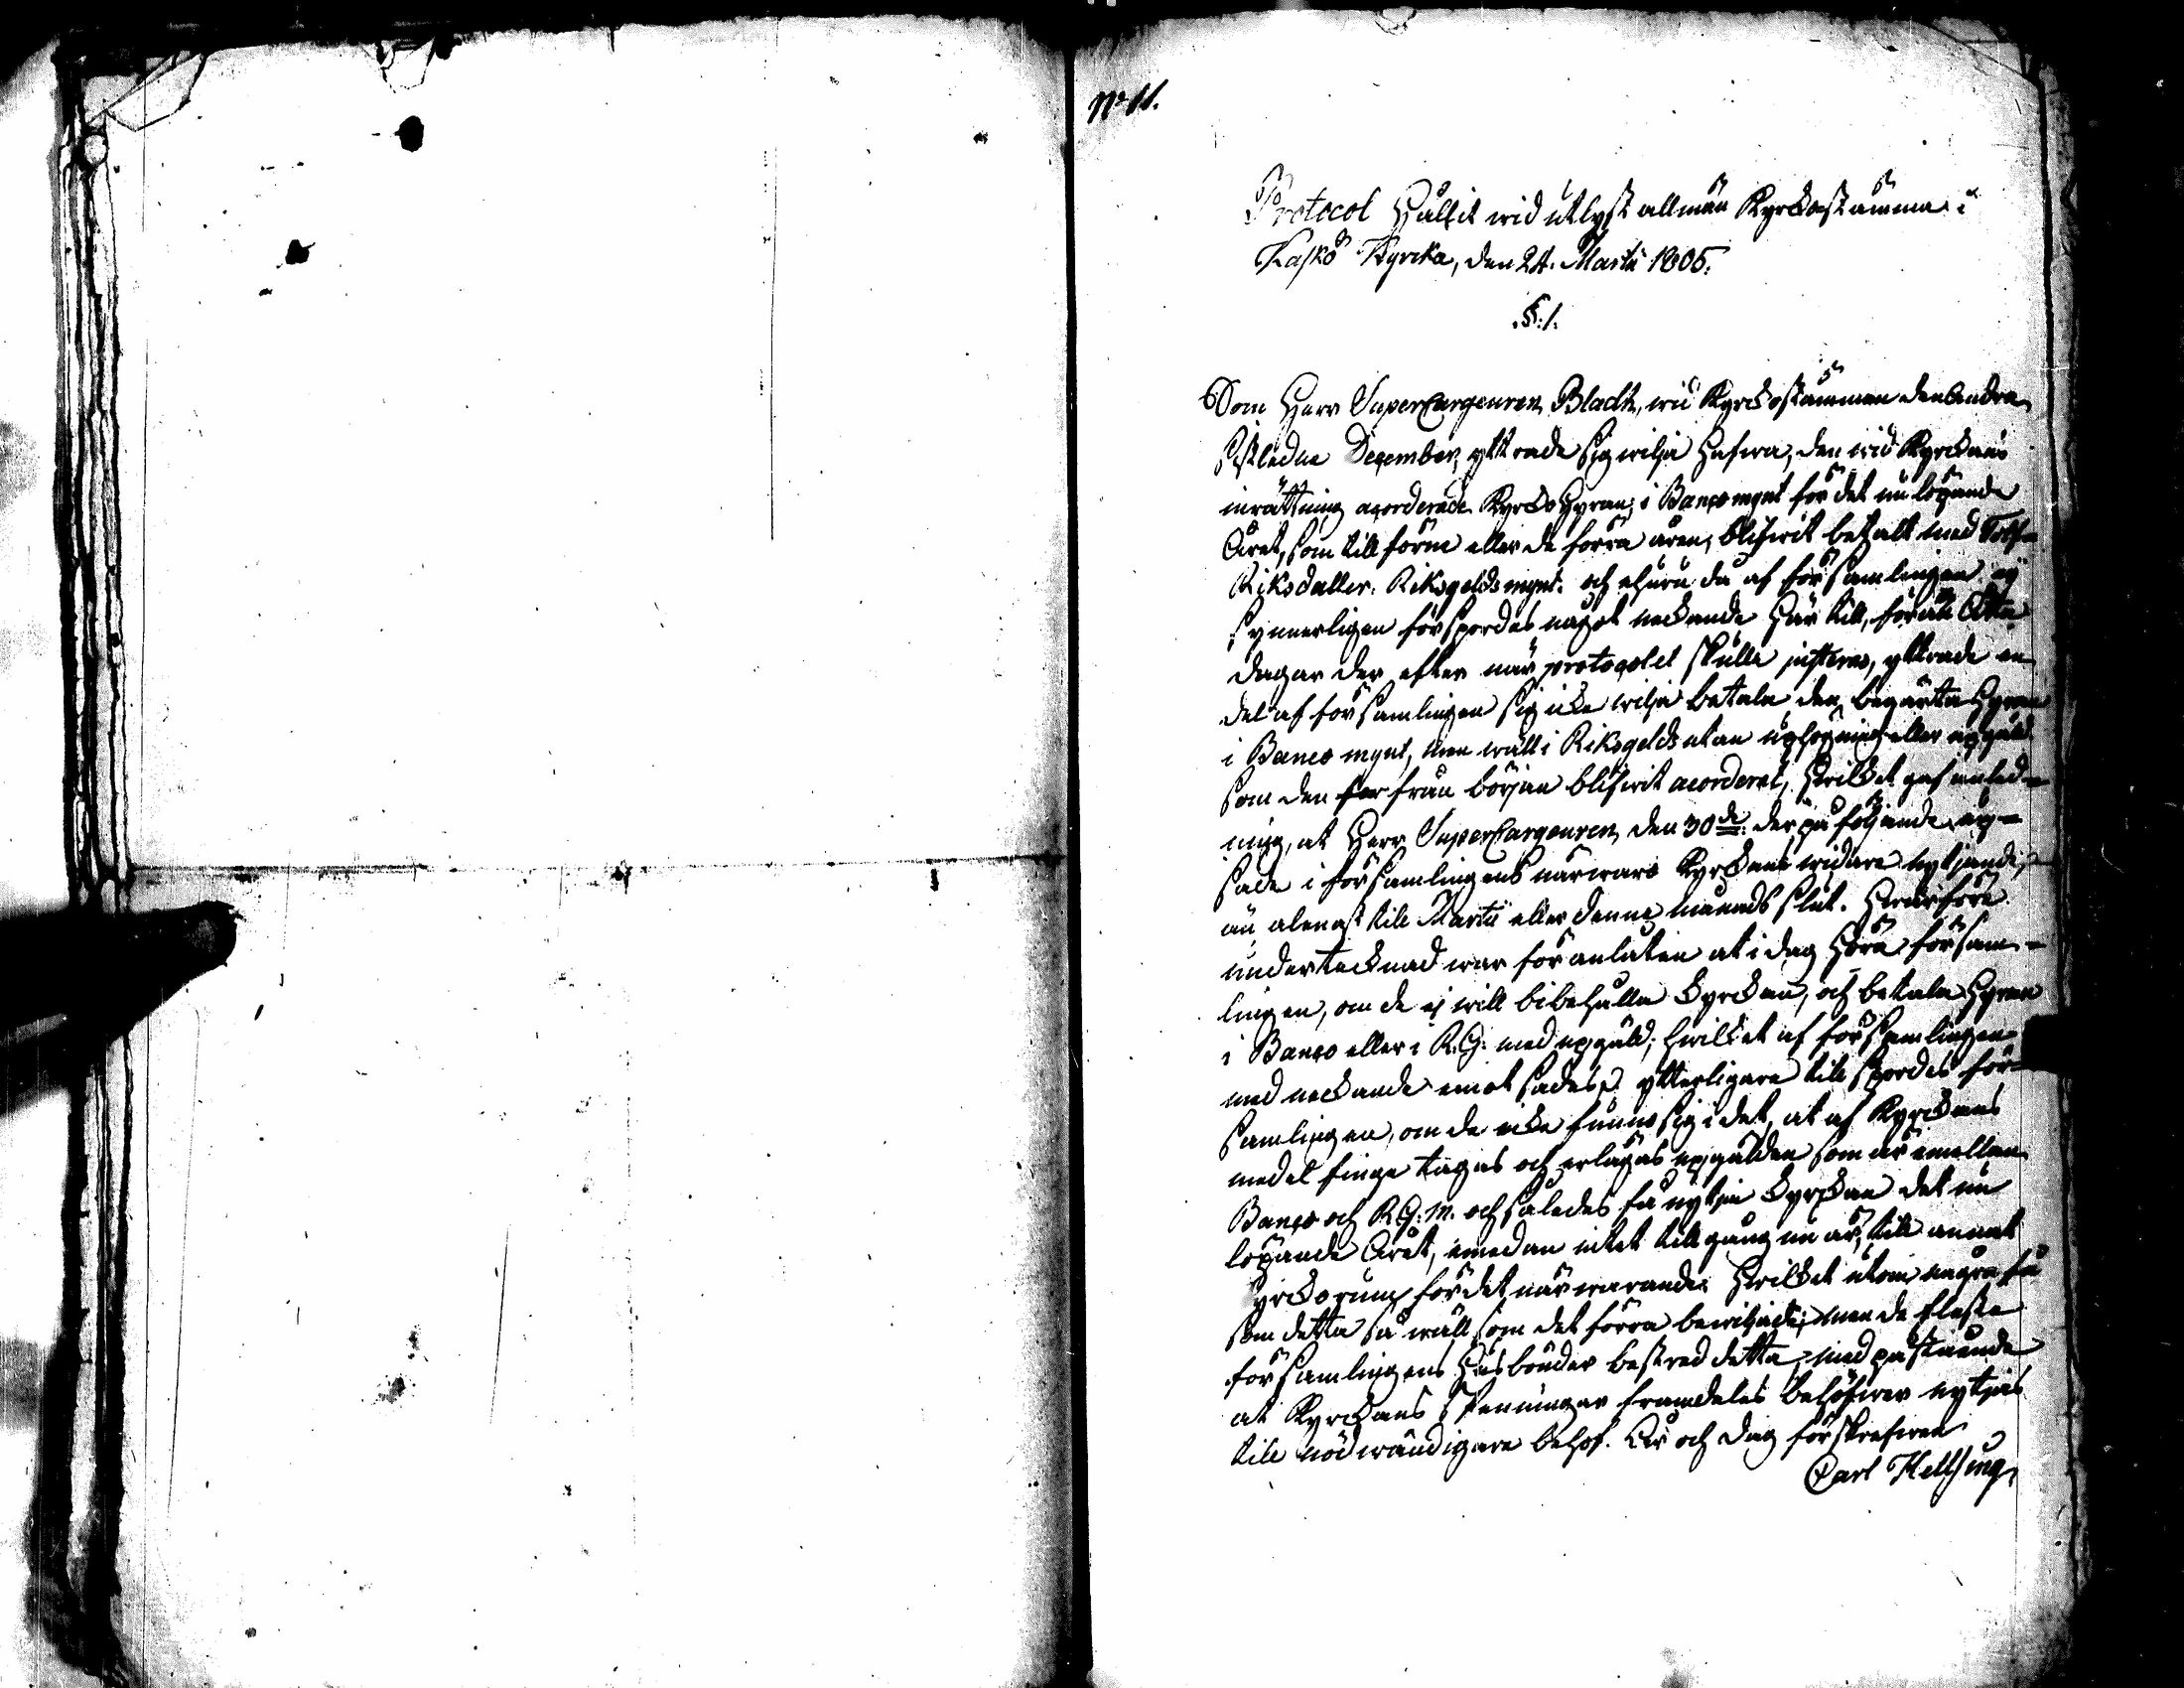 No 11.
Protocol Hållit wid utlyst allmän Kyrckostämma i
Kaskö Kyrcka, den 24. Martii 1805.
§. 1.
Som Herr SuperCargeuren Bladh, wid Kyrckostämman den Andra
sistledne December, yttrade sig wilja Hafwa, den wid Kyrckans
inrättning acorderade Kyrcko Hyran, i Banco mynt för det nu löpande
Året, som till förne eller de förra åren, blifwit betalt med Tolf
Riksdaller. Riksgelds mynt. och ehuru då af församlingen ej
synnerligen förspordes något neckande Här till, för än Åtta
dagar der efter när protocolet skulle justeras, yttrade en
del af församlingen sig icke wilja betala den begärta Hyran
i Banco mynt, men wäll i Riksgelds utan uphögning eller upgäld
som den för från början blifwit acorderat, Hwilcket gaf anled-
ning, at Herr SuperCargeuren den 30de der på följande up-
sade i församlingens närwaro Kyrckans widare nytjande,
än alenast till Martii eller denne månads slut. Hwarföre
undertecknad war föranlåten at i dag Höra försam-
lingen, om de ej will bibehålla Kyrckan, och betala Hyran
i Banco eller i R.G. med upgäld; Hwilcket af församlingen
med neckande emot sades. ytterligare till spordes för-
samlingen, om de icke funno sig i det, at af Kyrckans
medel finge tagas och erläggas upgälden som är emellan
Banco och R.G.m. och således få nytja Kyrckan det nu
löpande Året, emedan intet tillgång nu är, till annat
Kyrckorum för det närwarande. Hwilcket utom några få
som detta så wäll som det förra bewiljade; men de fleste
församlingens Husbönder bestred detta, med påstående
at Kyrckans Penningar framdeles behöfwer nytjas
till nödwändigare behof. År och dag förskrefwen
Carl Hellsing